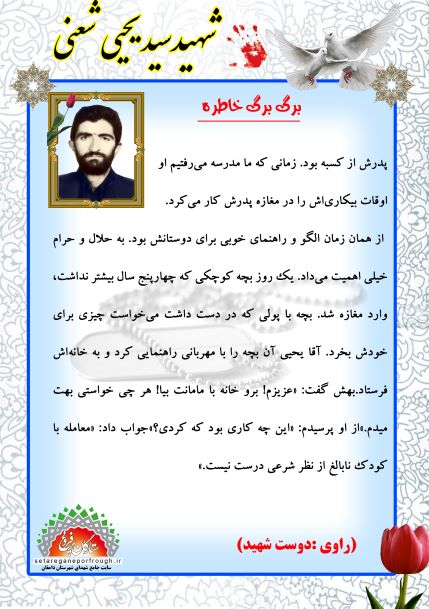 شهید سید یحیی شعنی
برگ برگ خاطره
پدرش از کسبه بود. زمانی که ما مدرسه می‌رفتیم او
اوقات بیکاری‌اش را در مغازه پدرش کار می‌کرد.
از همان زمان الگو و راهنمای خوبی برای دوستانش بود. به حلال و حرام
خیلی اهمیت می‌داد. یک روز بچه کوچکی که چهارپنج سال بیشتر نداشت،
وارد مغازه شد. بچه با پولی که در دست داشت می‌خواست چیزی برای
خودش بخرد. آقا یحیی آن بچه را با مهربانی راهنمایی کرد و به خانه‌اش
فرستاد.بهش گفت: «عزیزم! برو خانه با مامانت بیا! هر چی خواستی بهت
میدم.»از او پرسیدم: «این چه کاری بود که کردی؟»جواب داد: «معامله با
کودک نابالغ از نظر شرعی درست نیست.»
(راوی :دوست شهید)
ستارگان پرفروغ
setareganeporfrough.ir
سایت جامع شهدای شهرستان دامغان